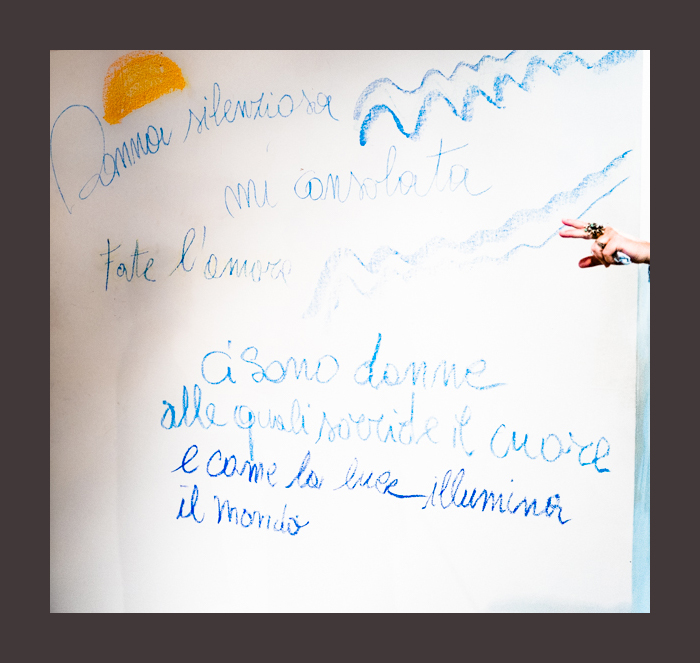 Donna silenziosa
mi consolata
Fate l'amore
ci sono donne
alle quali sorride il cuore
e come la luce illumina
il mondo